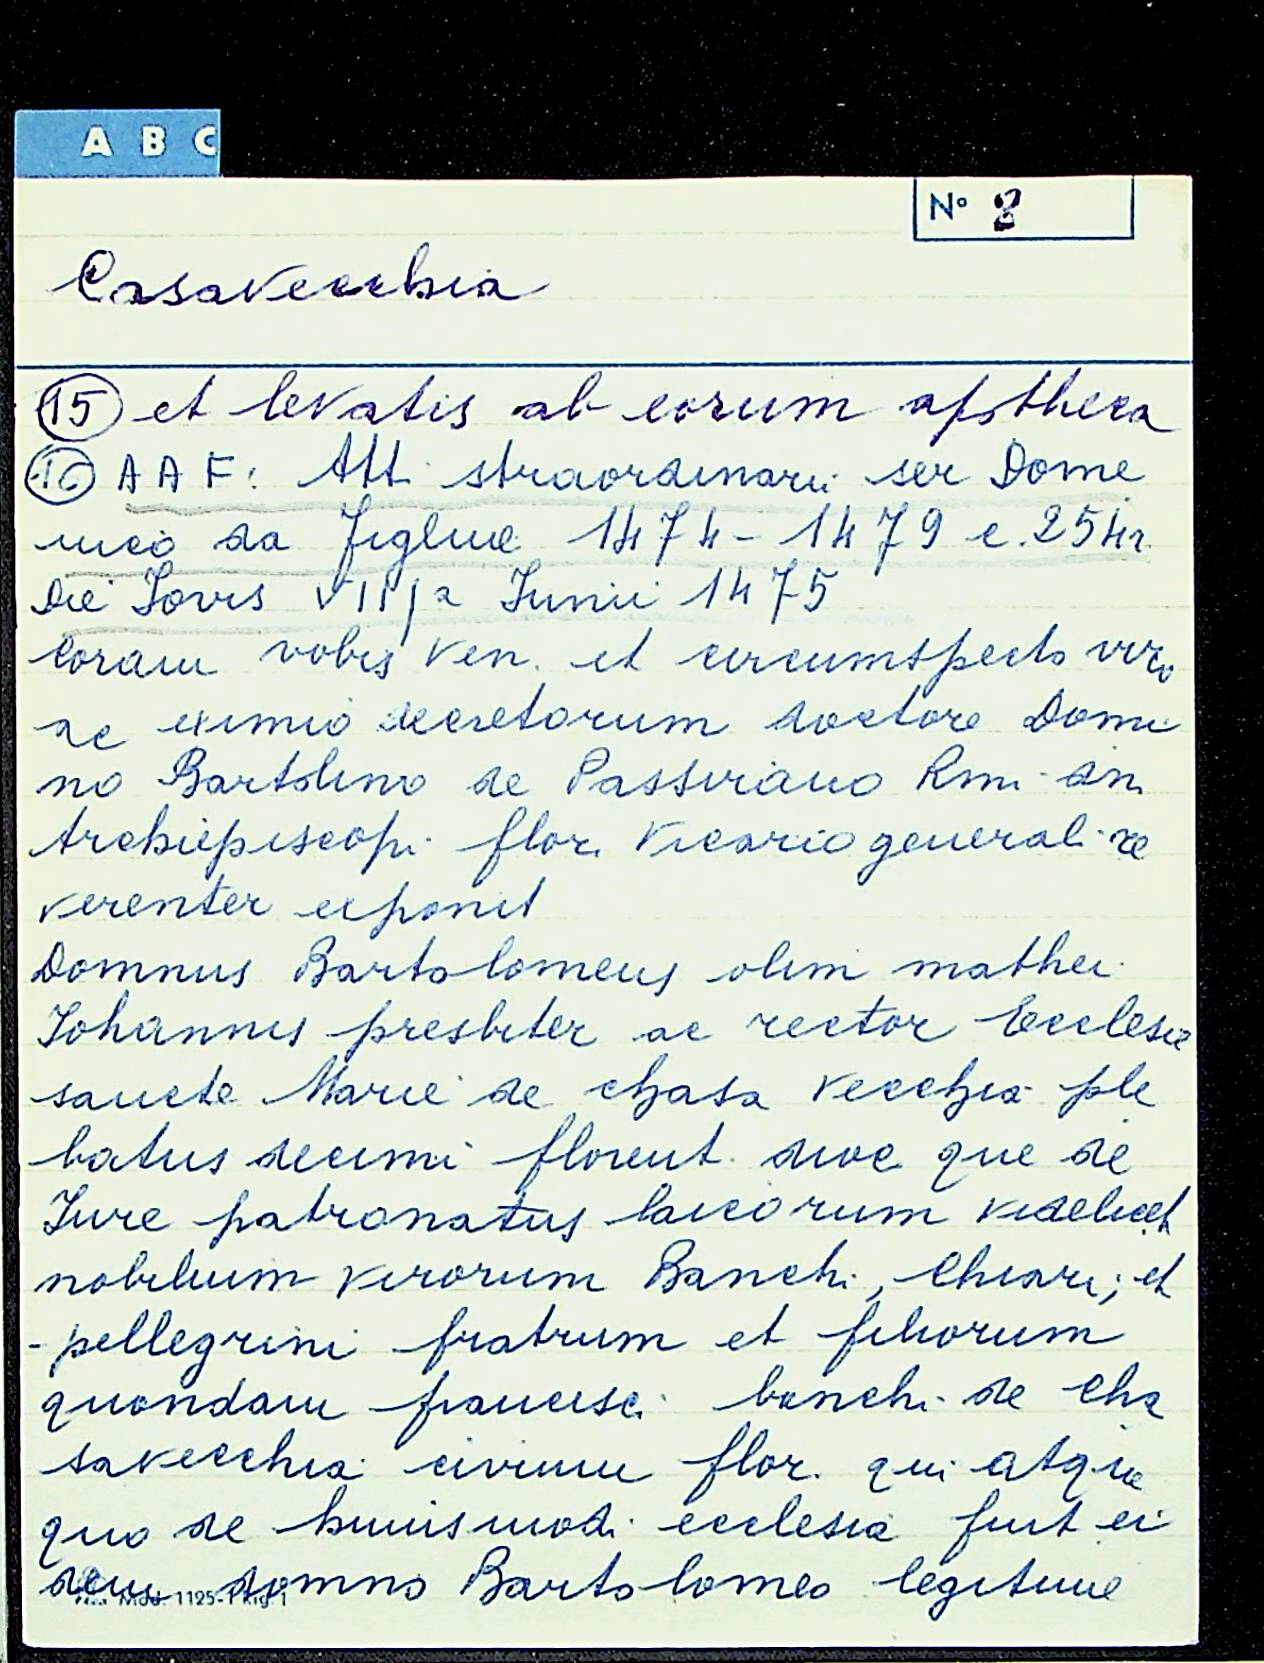 A B C
N° 8
Casavecchia
15 et levatis ab eorum apotheca
16 A A F: Atti straordinarii ser Dome
nico da Figline 1474-1479 c. 254r.
Die Jovis VIIIJa Junii 1475
Coram vobis Ven. et circumspecto viro
ac eximio decretorum doctore Domi
no Bartolino de Passirano Rmi dni
Archiepiscopi flor. Vicario generali re
verenter exponit
Domnus Bartolomeus olim mathei
Johannis presbiter ac rector Ecclesie
sancte Marie de chasa Vecchia ple
batus decimi florent. dioc. que de
Jure patronatus laicorum videlicet
nobilium virorum Banchi, Chiari, et
pellegrini fratrum et filiorum
quondam francisci banchi de Cha
savecchia civium flor. qui atque
quo de huiusmodi ecclesia fuit ei
dem domno Bartolomeo legitime
Mod. 1125-1 Rig. 1